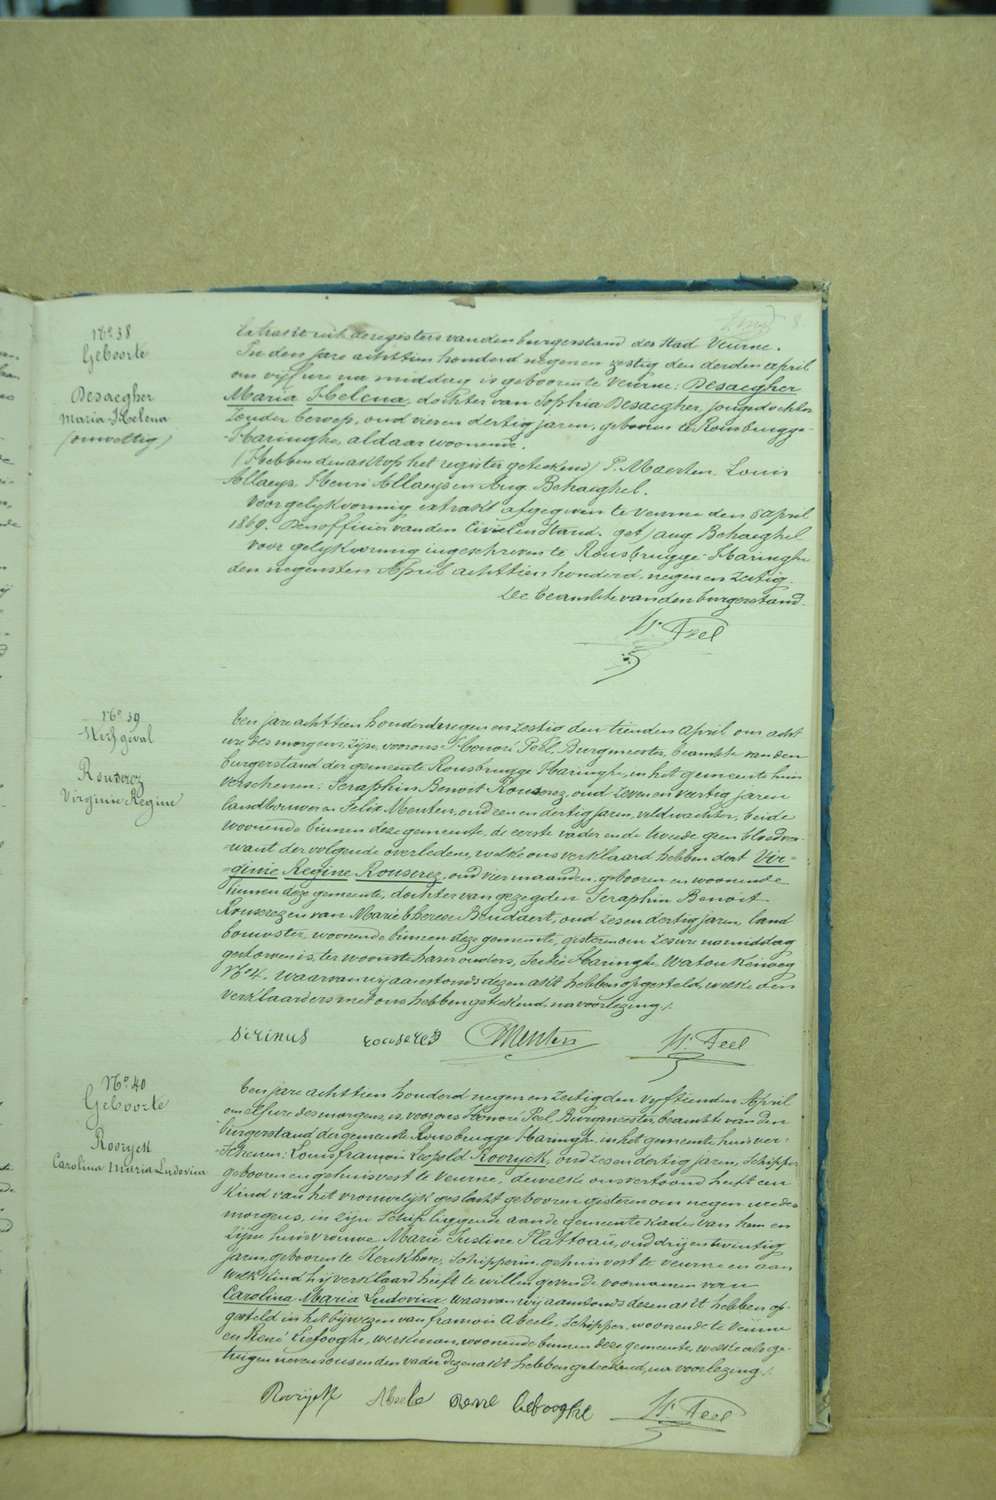 No 38
Geboorte
Desaegher
Maria Helena
(onwettig)
Extrakt uit de registers van den burgerstand der Stad Veurne.
In den jare achttien honderd negen en zestig den derden april
om vijf ure na middag is geboren te Veurne: Desaegher
Maria Helena, dochter van Sophia Desaegher, jonge dochter
zonder beroep, oud vier en dertig jaren, geboren te Rousbrugge-
Haringhe, aldaar woonende.
(Hebben den akt op het register geteekend) P. Maerten. Louis
Allaeys. Henri Allaeys en Aug. Behaeghel.
Voor gelykvormig extrakt afgegeven te Veurne den 8 april
1869. Den officier van den Civielen Stand. get) Aug Behaeghel
Voor gelykvormig ingeschreven te Rousbrugge-Haringhe
den negensten April achttien honderd negen en zestig.
De beambte van den burgerstand.
H. Peel
No 39
Sterfgeval
Rouserez
Virginie Regine
Ten jare achttien honderd negen en zestig den tienden April om acht
ure des morgens zijn, voor ons Honoré Peel, Burgmeester, beambte van den
burgerstand der gemeente Rousbrugge Haringhe, in het gemeente huis
verschenen: Seraphin Benoit Rouserez, oud zeven en veertig jaren
landbouwer en Felix Menten, oud een en dertig jaren, veldwachter, beide
woonende binnen deze gemeente, de eerste vader en de tweede geen bloedver-
want der volgende overledene, welke ons verklaard hebben dat Vir-
ginie Regine Rouserez, oud vier maanden, geboren en woonende
binnen deze gemeente, dochter van gezegden Seraphin Benoit
Rouserez en van Marie Therese Beudaert, oud zes en dertig jaren, land
bouwster, woonende binnen deze gemeente, gisteren om zes ure namiddag
gestorven is, ter woonste harer ouders, Sectie Haringhe, Watou Keiweg
No 4. Waarvan wij aanstonds dezen akt hebben opgesteld, welke den
verklaarders met ons hebben geteekend, na voorlezing /.
Sirinus rouserez Menten H. Peel
No 40
Geboorte
Rooryck
Carolina Maria Ludovica
Ten jare achttien honderd negen en zestig den vyftienden April
om elf ure des morgens, is voor ons Honoré Peel, Burgmeester, beambte van den
burgerstand der gemeente Rousbrugge Haringhe, in het gemeente huis ver-
schenen: Louis françois Leopold Rooryck, oud zes en dertig jaren, Schipper
geboren en gehuisvest te Veurne, dewelke ons vertoond heeft een
Kind van het vrouwelijk geslacht geboren gisteren om negen ure des
morgens, in zijn Schip liggende aan de gemeente Kade, van hem en
zijne huisvrouwe Marie Justine Plattoau, oud drij en twintig
jaren, geboren te Kerckhove, Schipperin, gehuisvest te Veurne en aan
welk Kind hij verklaard heeft te willen geven de voornamen van
Carolina Maria Ludovica, waarvan wij aanstonds dezen akt hebben op-
gesteld in het bijwezen van françois Abeele, Schipper, woonende te Veurne
en René Liefooghe, werkman, woonende binnen deze gemeente, welke als ge-
tuigen nevens ons en den vader dezen akt hebben geteekend, na voorlezing /.
Rooryck Abeele Rene liefooghe H. Peel